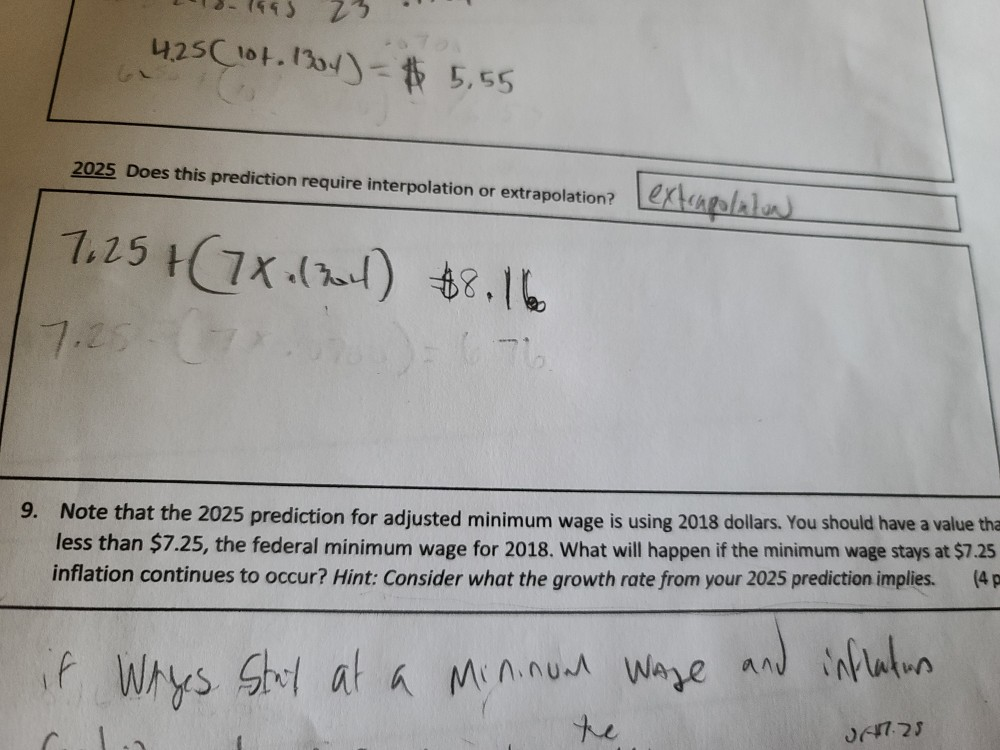 -1995 23
4.25(10+.1304) = $ 5.55
2025 Does this prediction require interpolation or extrapolation?
extrapolation
7.25 + (7x.1304) $8.16
7.25 (7x. ) = 6.76
9. Note that the 2025 prediction for adjusted minimum wage is using 2018 dollars. You should have a value tha
less than $7.25, the federal minimum wage for 2018. What will happen if the minimum wage stays at $7.25
inflation continues to occur? Hint: Consider what the growth rate from your 2025 prediction implies. (4 p
if Wages Stay at a Mininum wage and inflation
the